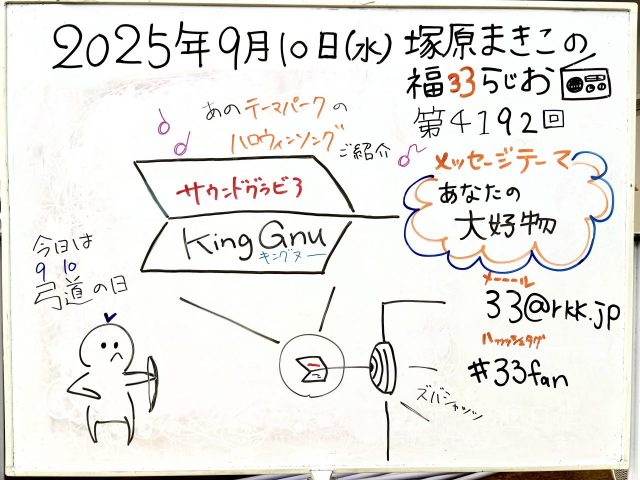 2025年9月10日(水) 塚原まきこの
福33らじお
第4192回
あのテーマパークの
ハロウィンソング
ご紹介
サウンドグラビ3
King Gnu
キングヌー
メッセージテーマ
あなたの
大好物
今日は
9 10
弓道の日
メーール
33@rkk.jp
ハッシュタグ
#33fan